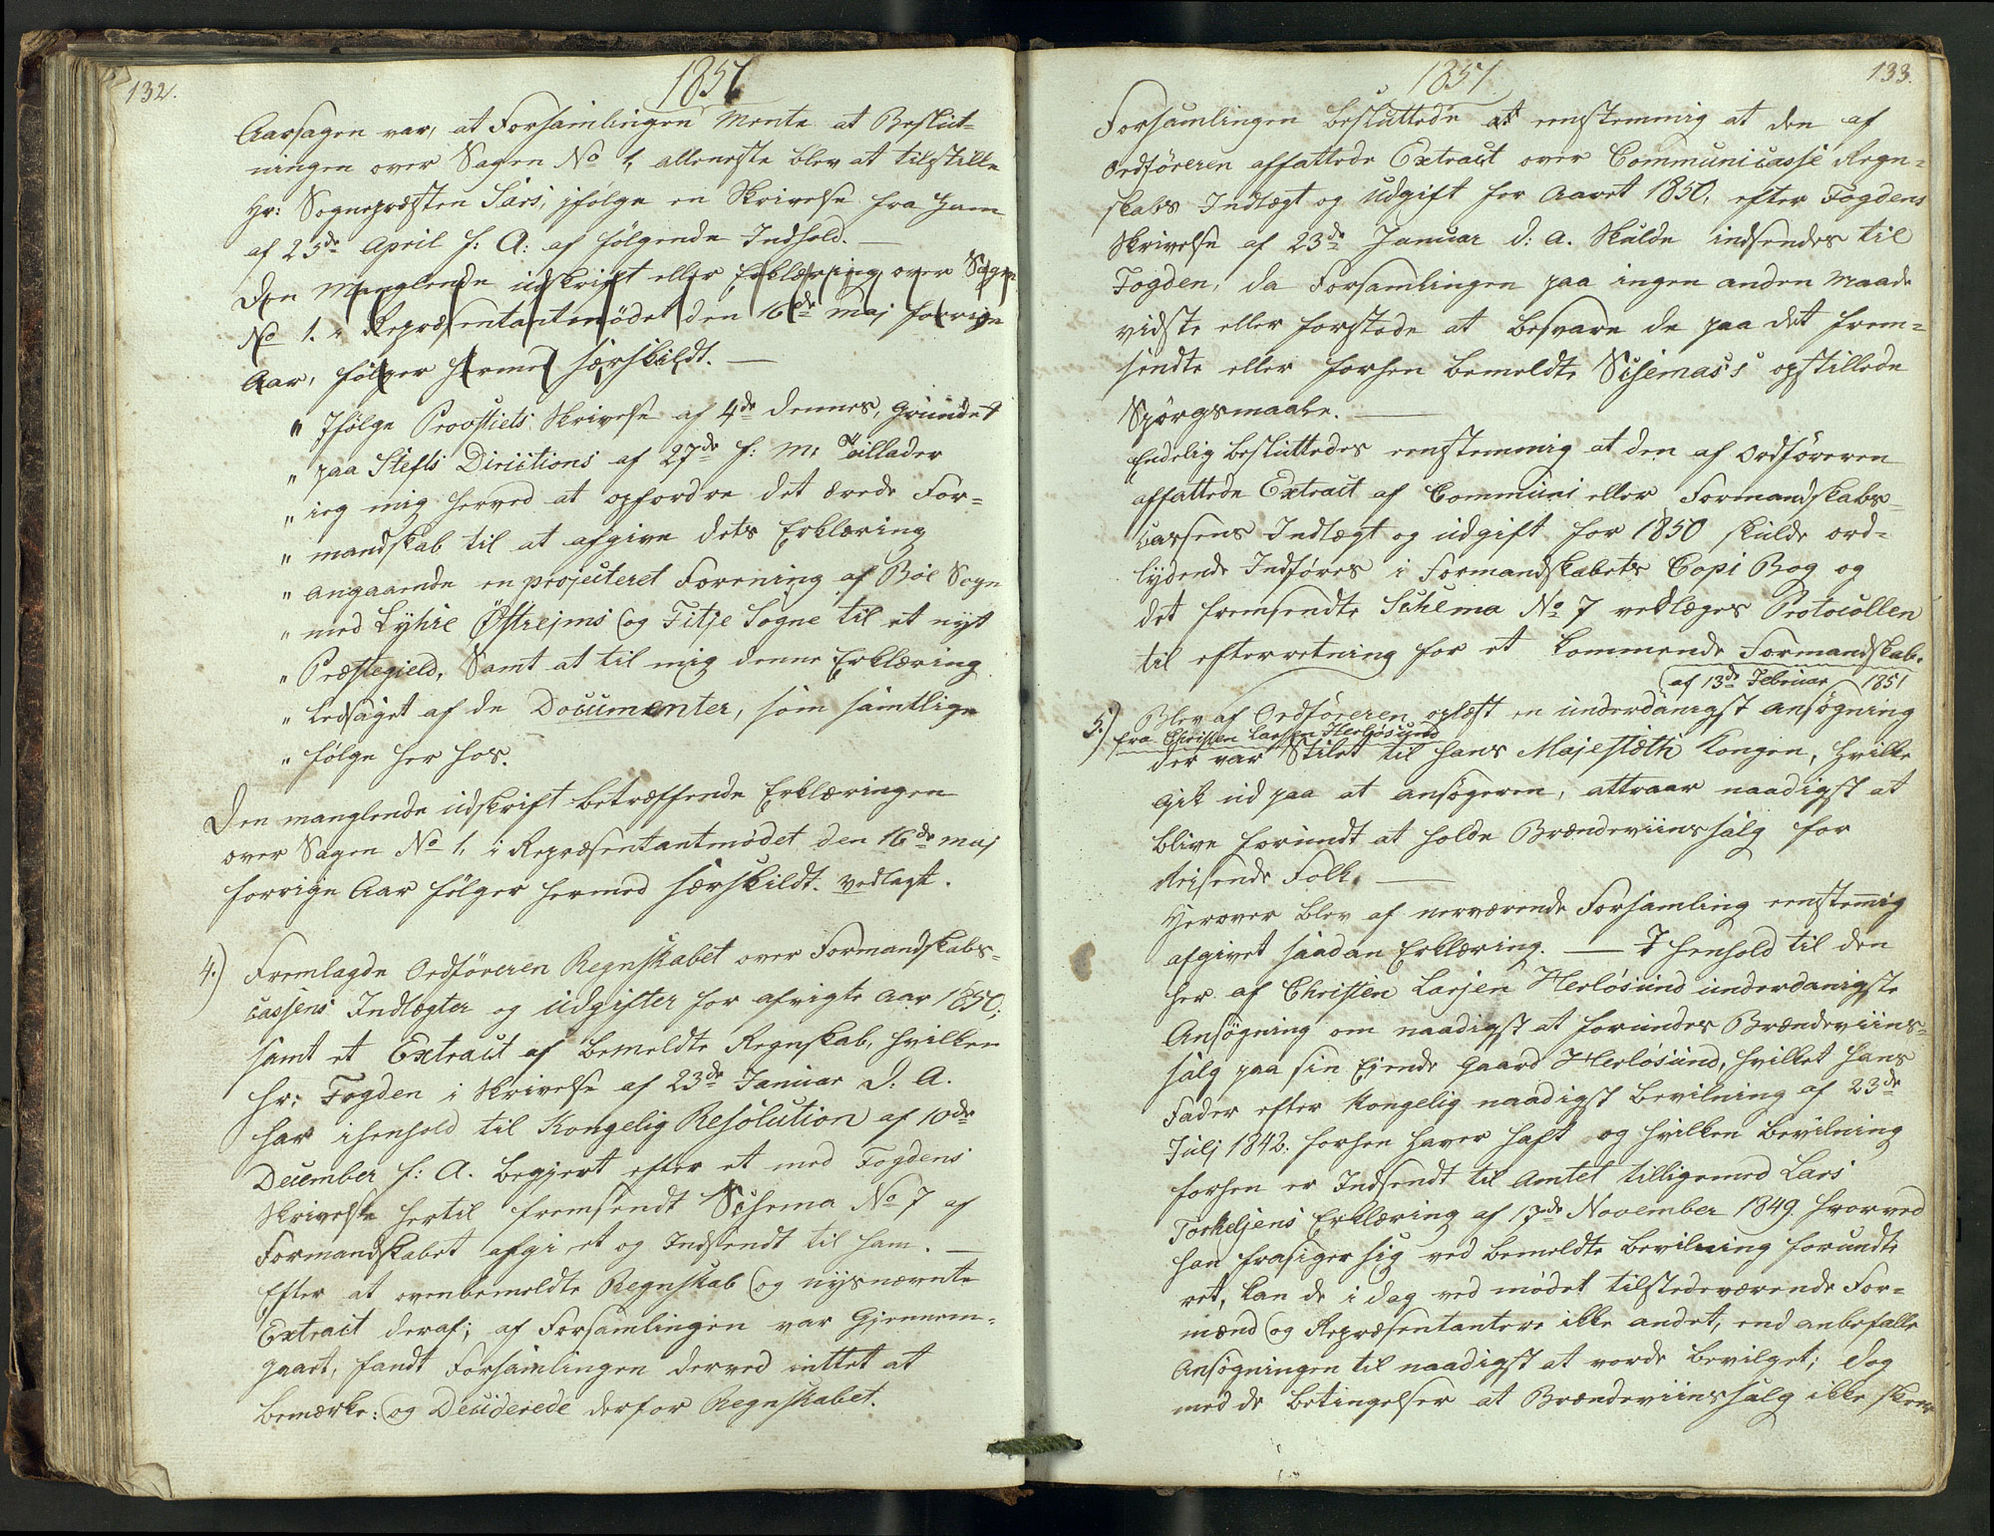 132.
1851
Aarsagen var, at Forsamlingen mente at Beslut-
ningen over Sagen No 1, alleneste blev at tilstille
Hr: Sognepræsten Sars, ifølge en Skrivelse fra Ham
af 25de April f: A: af følgende Indhold. —
Den Manglende udskrift eller Erklæring over Sagen
No 1. i Repræsentantmødet den 16de Maj forrige
Aar, følger hermed særskildt. —
" Ifølge Provstiets Skrivelse af 4de dennes, Grundet
" paa Stifts Directions af 27de f: M: Tillader
" ieg mig herved at opfordre det ærede For-
" mandskab til at afgive dets Erklæring
" angaaende en projecteret Forening af Böe Sogn
" med Lyhre Østrejms og Fitje Sogne til et nyt
" Præstegield, Samt at til mig denne Erklæring
" Ledsaget af de Documenter, som samtlige
" følge her hos.
Den manglende udskrift betræffende Erklæringen
over Sagen No 1, i Repræsentantmødet den 16de Maj
forrige Aar følger hermed særskildt vedlagt.
4.) Fremlagde Ordføreren Regnskabet over Formandskabs-
cassens Indtægter og Udgifter for afvigte Aar 1850;
samt et Extract af bemeldte Regnskab, hvilken
Hr: Fogden i Skrivelse af 23de Januar d. A.
har ihenhold til Kongelig Resolution af 10de
December f: A. begjert efter et med Fogdens
Skrivelse hertil fremsendt Schema No 7 af
Formandskabet afgivet og Indsendt til ham. —
Efter at ovenbemeldte Regnskab og nysnævnte
Extract deraf; af Forsamlingen var Gjennem-
gaaet, fandt Forsamlingen derved intet at
bemærke: og Deciderede derfor Regnskabet.
1851.
133.
Forsamlingen besluttede at eenstemmig at den af
Ordføreren affattede Extract over Communicasse Regn-
skabs Indtægt og Udgift for Aaret 1850, efter Fogdens
Skrivelse af 23de Januar d: A. Skulde indsendes til
Fogden, da Forsamlingen paa ingen anden Maade
vidste eller forstode at besvare de paa det frem-
sendte eller forhen bemeldte Schemas's opstillede
Spörgsmaale. —
Endelig besluttedes eenstemmig at den af Ordføreren
affattede Extract af Communi eller Formandskabs-
cassens Indtægt og udgift for 1850 skulde ord-
lydende Indføres i Formandskabets Copi Bog og
det fremsendte Schema No 7 vedlæges Protocollen
til efterretning for et kommende Formandskab.
af 13de Februar 1851
5.) Blev af Ordføreren oplæst en underdanigst ansøgning
fra Christen Larsen Herløsund
der var Stilet til hans Majestæth Kongen, hvilke
gik ud paa at ansøgeren, attraar naadigst at
blive forundt at holde Brændeviinssalg for
Reisende Folk. —
Herover blev af nerværende Forsamling eenstemmig
afgivet saadan Erklæring. — I henhold til den
her af Christen Larsen Herløsund underdanigste
Ansøgning om naadigst at forundes Brændeviins-
salg paa sin Ejende Gaard Herløsund, hvilket hans
Fader efter Kongelig naadigst bevilning af 23de
Julj 1842: forhen haver haft og hvilken bevilning
forhen er Indsendt til Amtet tilligemed Lars
Torkelsens Erklæring af 17de November 1849 hvorved
han frasiger sig ved bemeldte bevilning forundte
ret, kan de i dag ved mødet tilstedeværende For-
mænd og Repræsentantere ikke andet, end anbefalle
Ansøgningen til naadigst at vorde bevilget; dog
med de betingelser at Brændeviinssalg ikke skeer